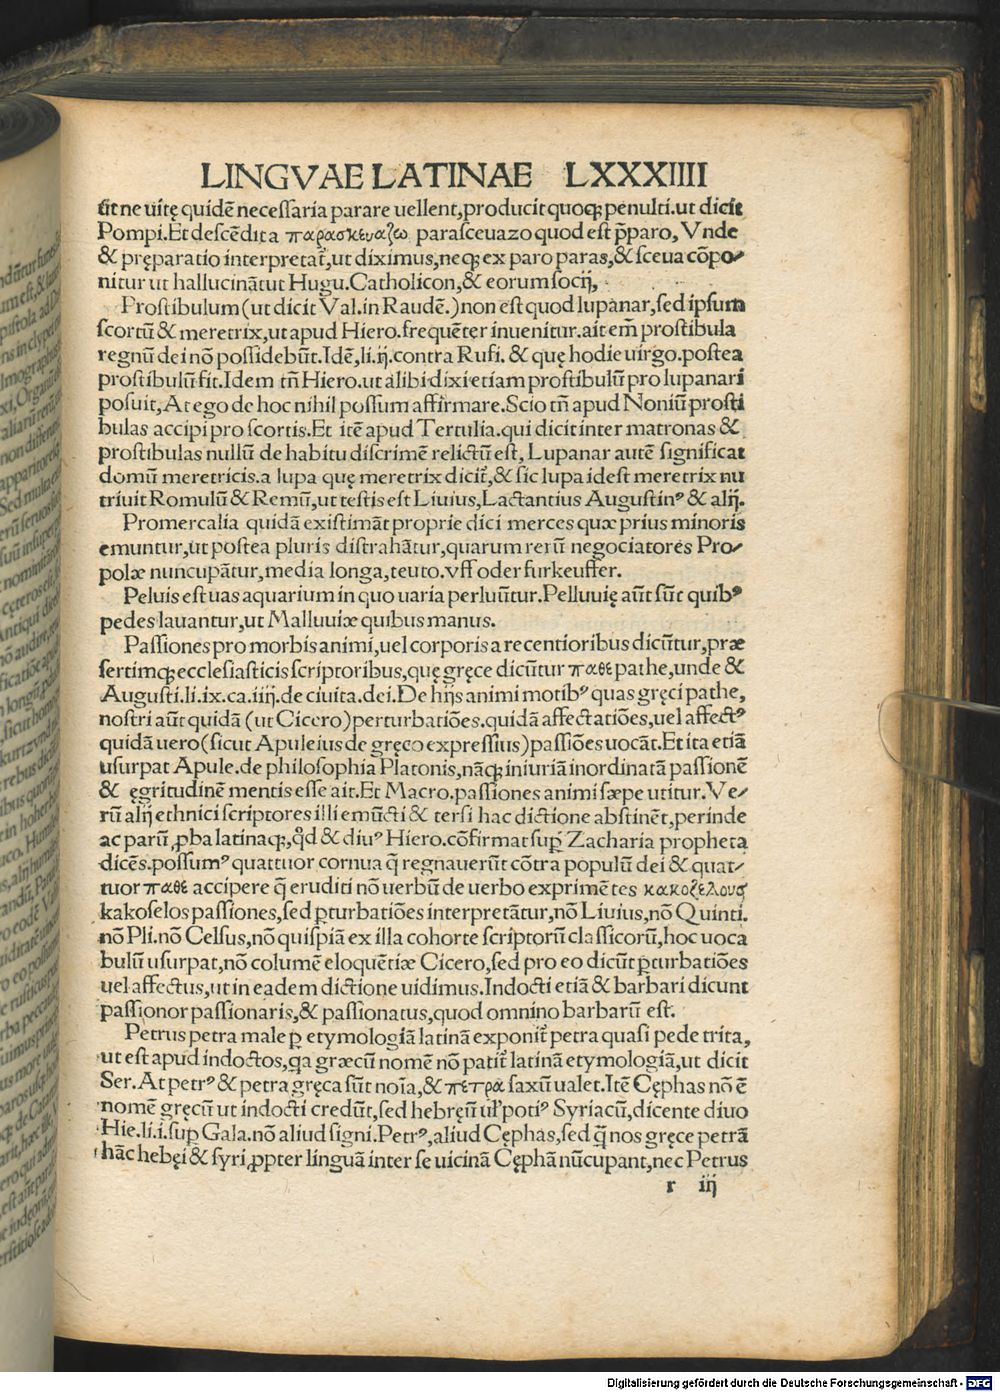 LINGVAE LATINAE LXXXIIII
sit ne uitę quidẽ necessaria parare uellent, producit quoq; penulti. ut dicit
Pompi. Et descẽdit a παρασκευαζω parasceuazo quod est p̃paro, Vnde
& pręparatio interpretat̃, ut diximus, neq; ex paro paras, & sceua cõpo-
nitur ut hallucinãtut Hugu. Catholicon, & eorum socij,
Prostibulum (ut dicit Val. in Raudẽ.) non est quod lupanar, sed ipsum
scortũ & meretrix, ut apud Hiero. frequẽter inuenitur. ait em̃ prostibula
regnũ dei nõ possidebũt. Idẽ, li. ij. contra Rufi. & quę hodie uirgo. postea
prostibulũ fit. Idem tñ Hiero. ut alibi dixi etiam prostibulũ pro lupanari
posuit, At ego de hoc nihil possum affirmare. Scio tñ apud Noniũ prosti
bulas accipi pro scortis. Et itẽ apud Tertulia. qui dicit inter matronas &
prostibulas nullũ de habitu discrimẽ relictũ est, Lupanar autẽ significat
domũ meretricis. a lupa quę meretrix dicit̃, & sic lupa idest meretrix nu
triuit Romulũ & Remũ, ut testis est Liuius, Lactantius Augustinꝰ & alij.
Promercalia quidã existimãt proprie dici merces quæ prius minoris
emuntur, ut postea pluris distrahãtur, quarum rerũ negociatores Pro-
polæ nuncupãtur, media longa, teuto. vff oder furkeuffer.
Peluis est uas aquarium in quo uaria perluũtur. Pelluuię aũt sũt quibꝰ
pedes lauantur, ut Malluuiæ quibus manus.
Passiones pro morbis animi, uel corporis a recentioribus dicũtur, præ
sertimq; ecclesiasticis scriptoribus, quę gręce dicũtur παθε pathe, unde &
Augusti. li. ix. ca. iiij. de ciuita. dei. De hijs animi motibꝰ quas gręci pathe,
nostri aũt quidã (ut Cicero) perturbatiões. quidã affectatiões, uel affectꝰ
quidã uero (sicut Apuleius de gręco expressius) passiões uocãt. Et ita etiã
usurpat Apule. de philosophia Platonis, nãq; iniuriã inordinatã passionẽ
& ęgritudinẽ mentis esse ait. Et Macro. passiones animi sæpe utitur. Ve-
rũ alij ethnici scriptores illi emũcti & tersi hac dictione abstinẽt, perinde
ac parũ ꝓba latinaq;, qd̃ & diuꝰ Hiero. cõfirmat sup̲ Zacharia propheta
dicẽs. possumꝰ quattuor cornua q̃ regnauerũt cõtra populũ dei & quat-
tuor παθε accipere q̃ eruditi nõ uerbũ de uerbo exprimẽtes κακοζελους
kakoselos passiones, sed ꝑturbatiões interpretãtur, nõ Liuius, nõ Quinti.
nõ Pli. nõ Celsus, nõ quispiã ex illa cohorte scriptorũ classicorũ, hoc uoca
bulũ usurpat, nõ columẽ eloquẽtiæ Cicero, sed pro eo dicũt ꝑturbatiões
uel affectus, ut in eadem dictione uidimus. Indocti etiã & barbari dicunt
passionor passionaris, & passionatus, quod omnino barbarũ est.
Petrus petra male ꝑ etymologiã latinã exponit̃ petra quasi pede trita,
ut est apud indoctos, qa græcũ nomẽ nõ patit̃ latinã etymologiã, ut dicit
Ser. At petrꝰ & petra gręca sũt noĩa, & πετρα saxũ ualet. Itẽ Cęphas nõ ẽ
nomẽ gręcũ ut indocti credũt, sed hebręũ ul' potiꝰ Syriacũ, dicente diuo
Hie. li. i. sup̲ Gala. nõ aliud signi. Petrꝰ, aliud Cęphas, sed q̃ nos gręce petrã
hãc hebęi & syri ꝓpter linguã inter se uicinã Cęphã nũcupant, nec Petrus
r iij
Digitalisierung gefördert durch die Deutsche Forschungsgemeinschaft - DFG